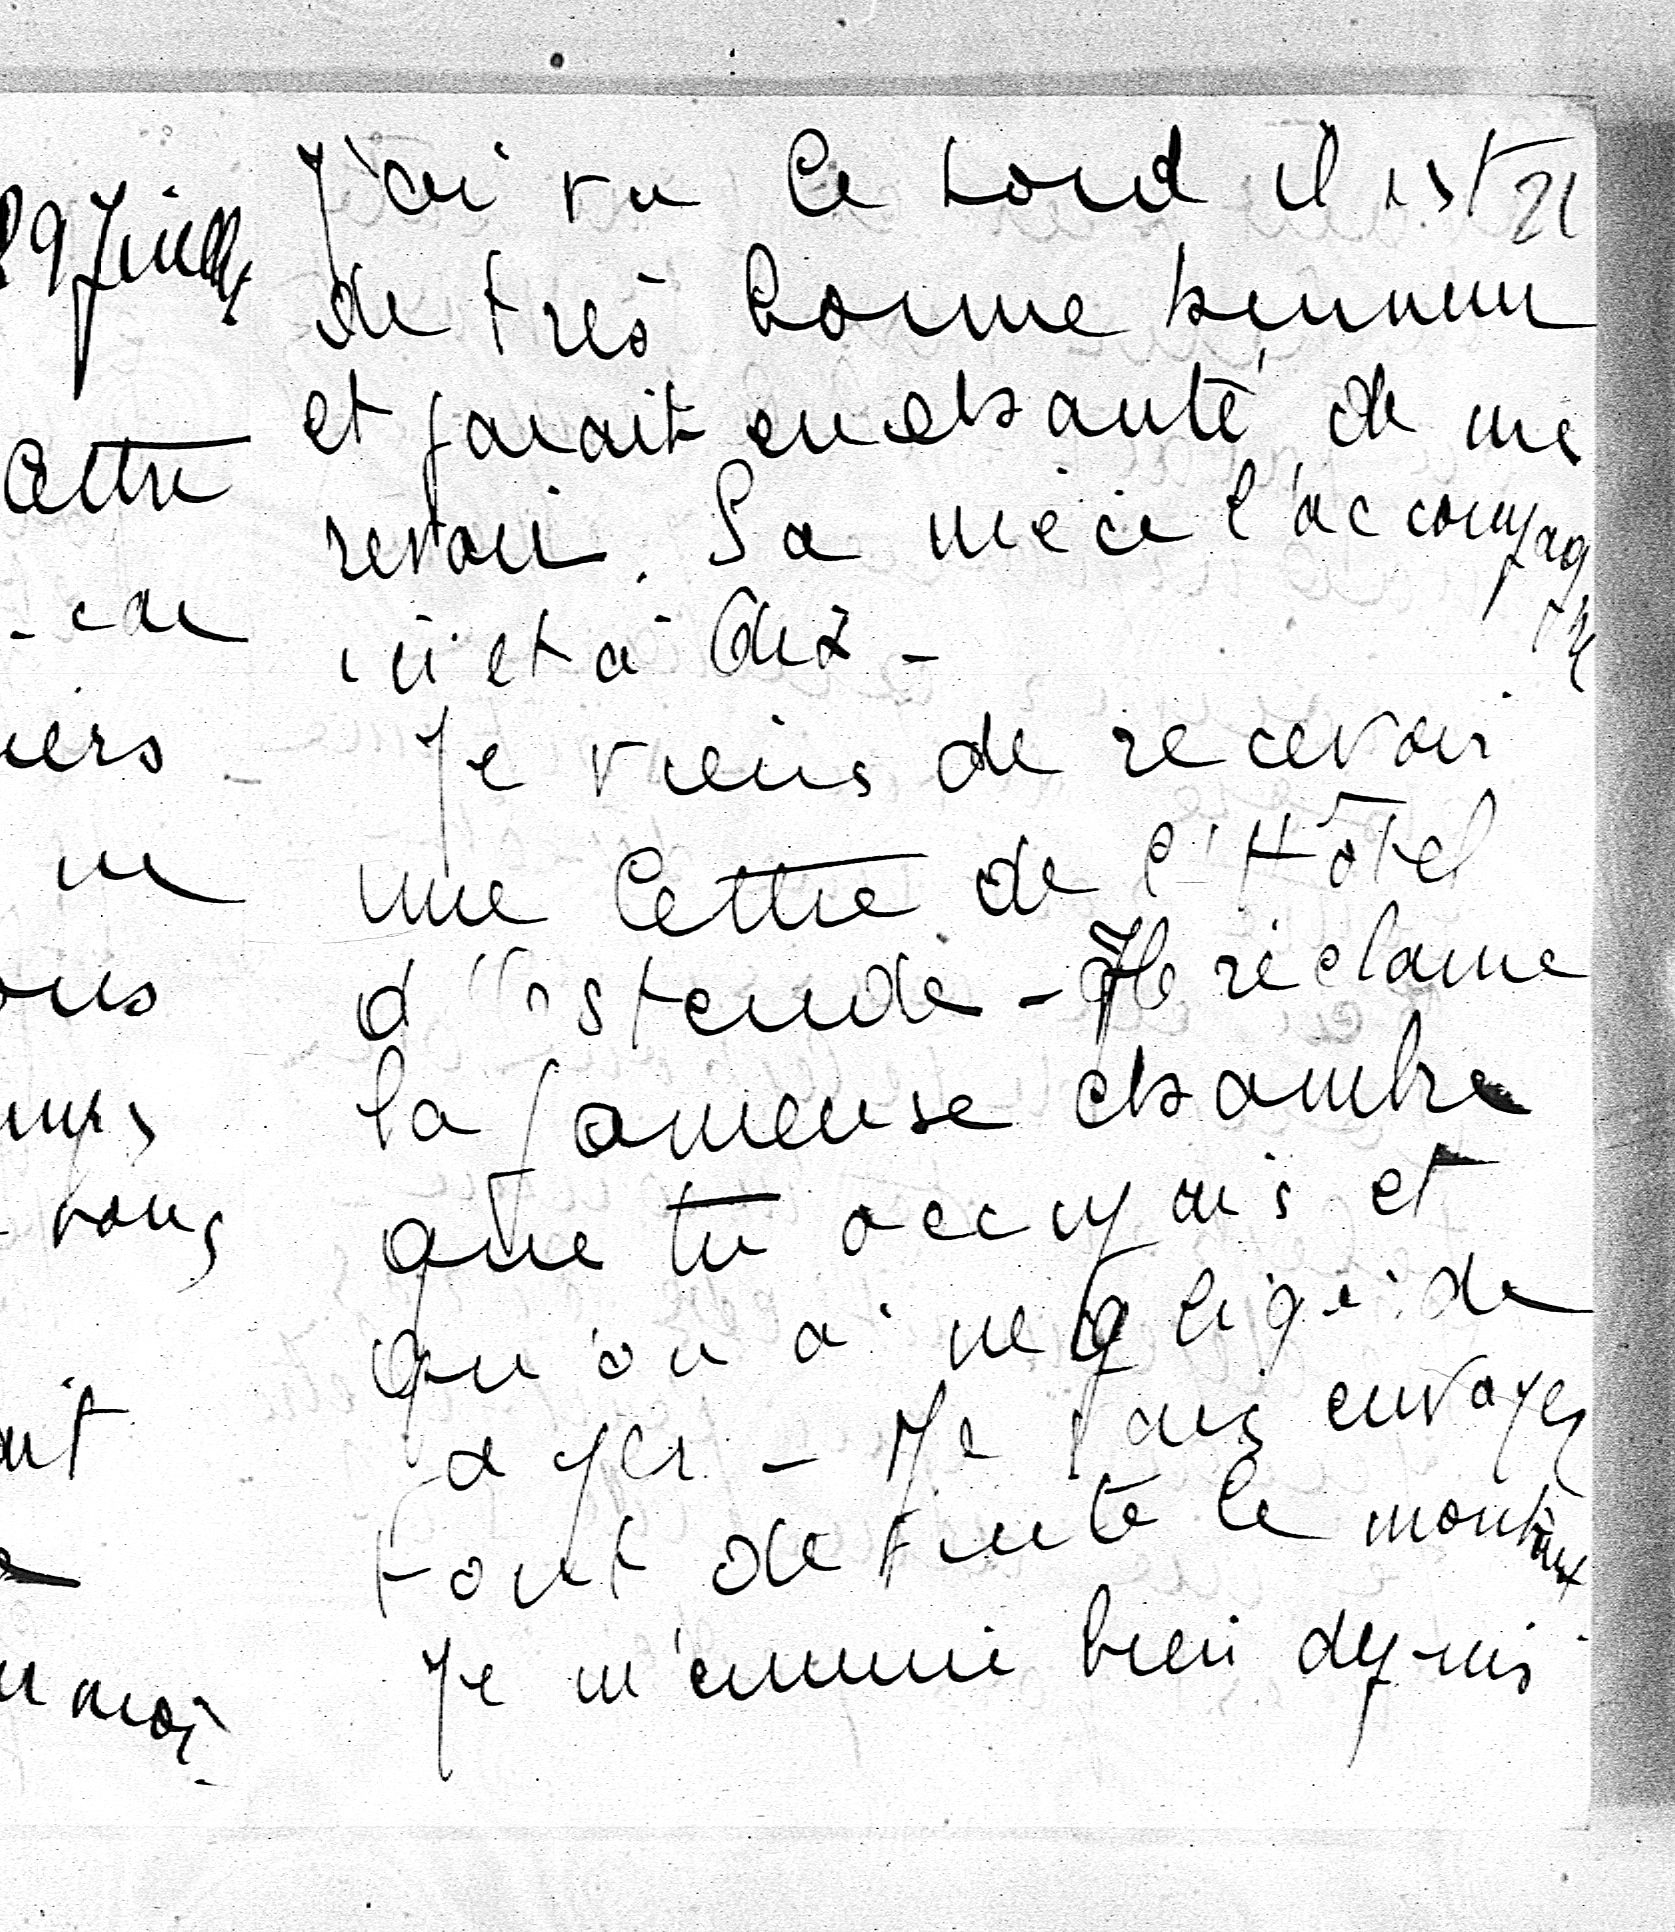 29 Juillet
lettre
- car
iers -
ne
ous
emps
- vous
ait
moi -
J'ai vu le Lord il est 21
de très bonne humeur
et parait enchanté de me
revoir. Sa nièce l'accompagne
ici et à Aix -
Je viens de recevoir
une lettre de l'Hôtel
d'Ostende - Il réclame
la fameuse chambre
que tu occupais et
qu'on a négligé de
payer - Je vais envoyer
tout de suite le montant
Je m'ennuie bien depuis